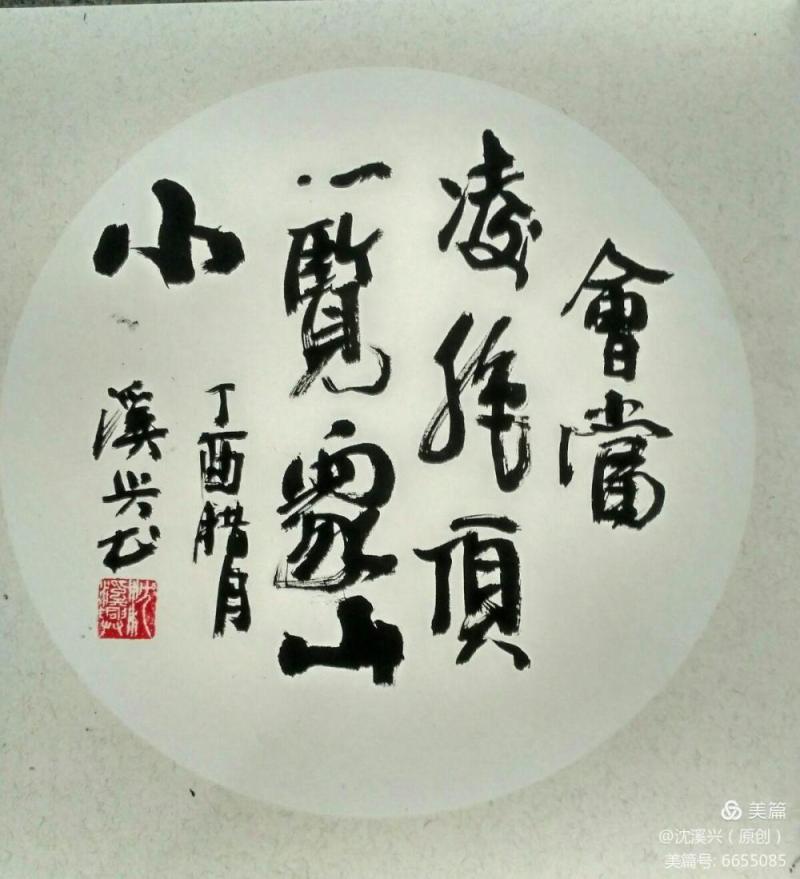 會當
凌絶頂
一覽衆山
小
丁酉腊月
溪兴书
沈溪兴
美篇
@沈溪兴（原创）
美篇号: 6655085